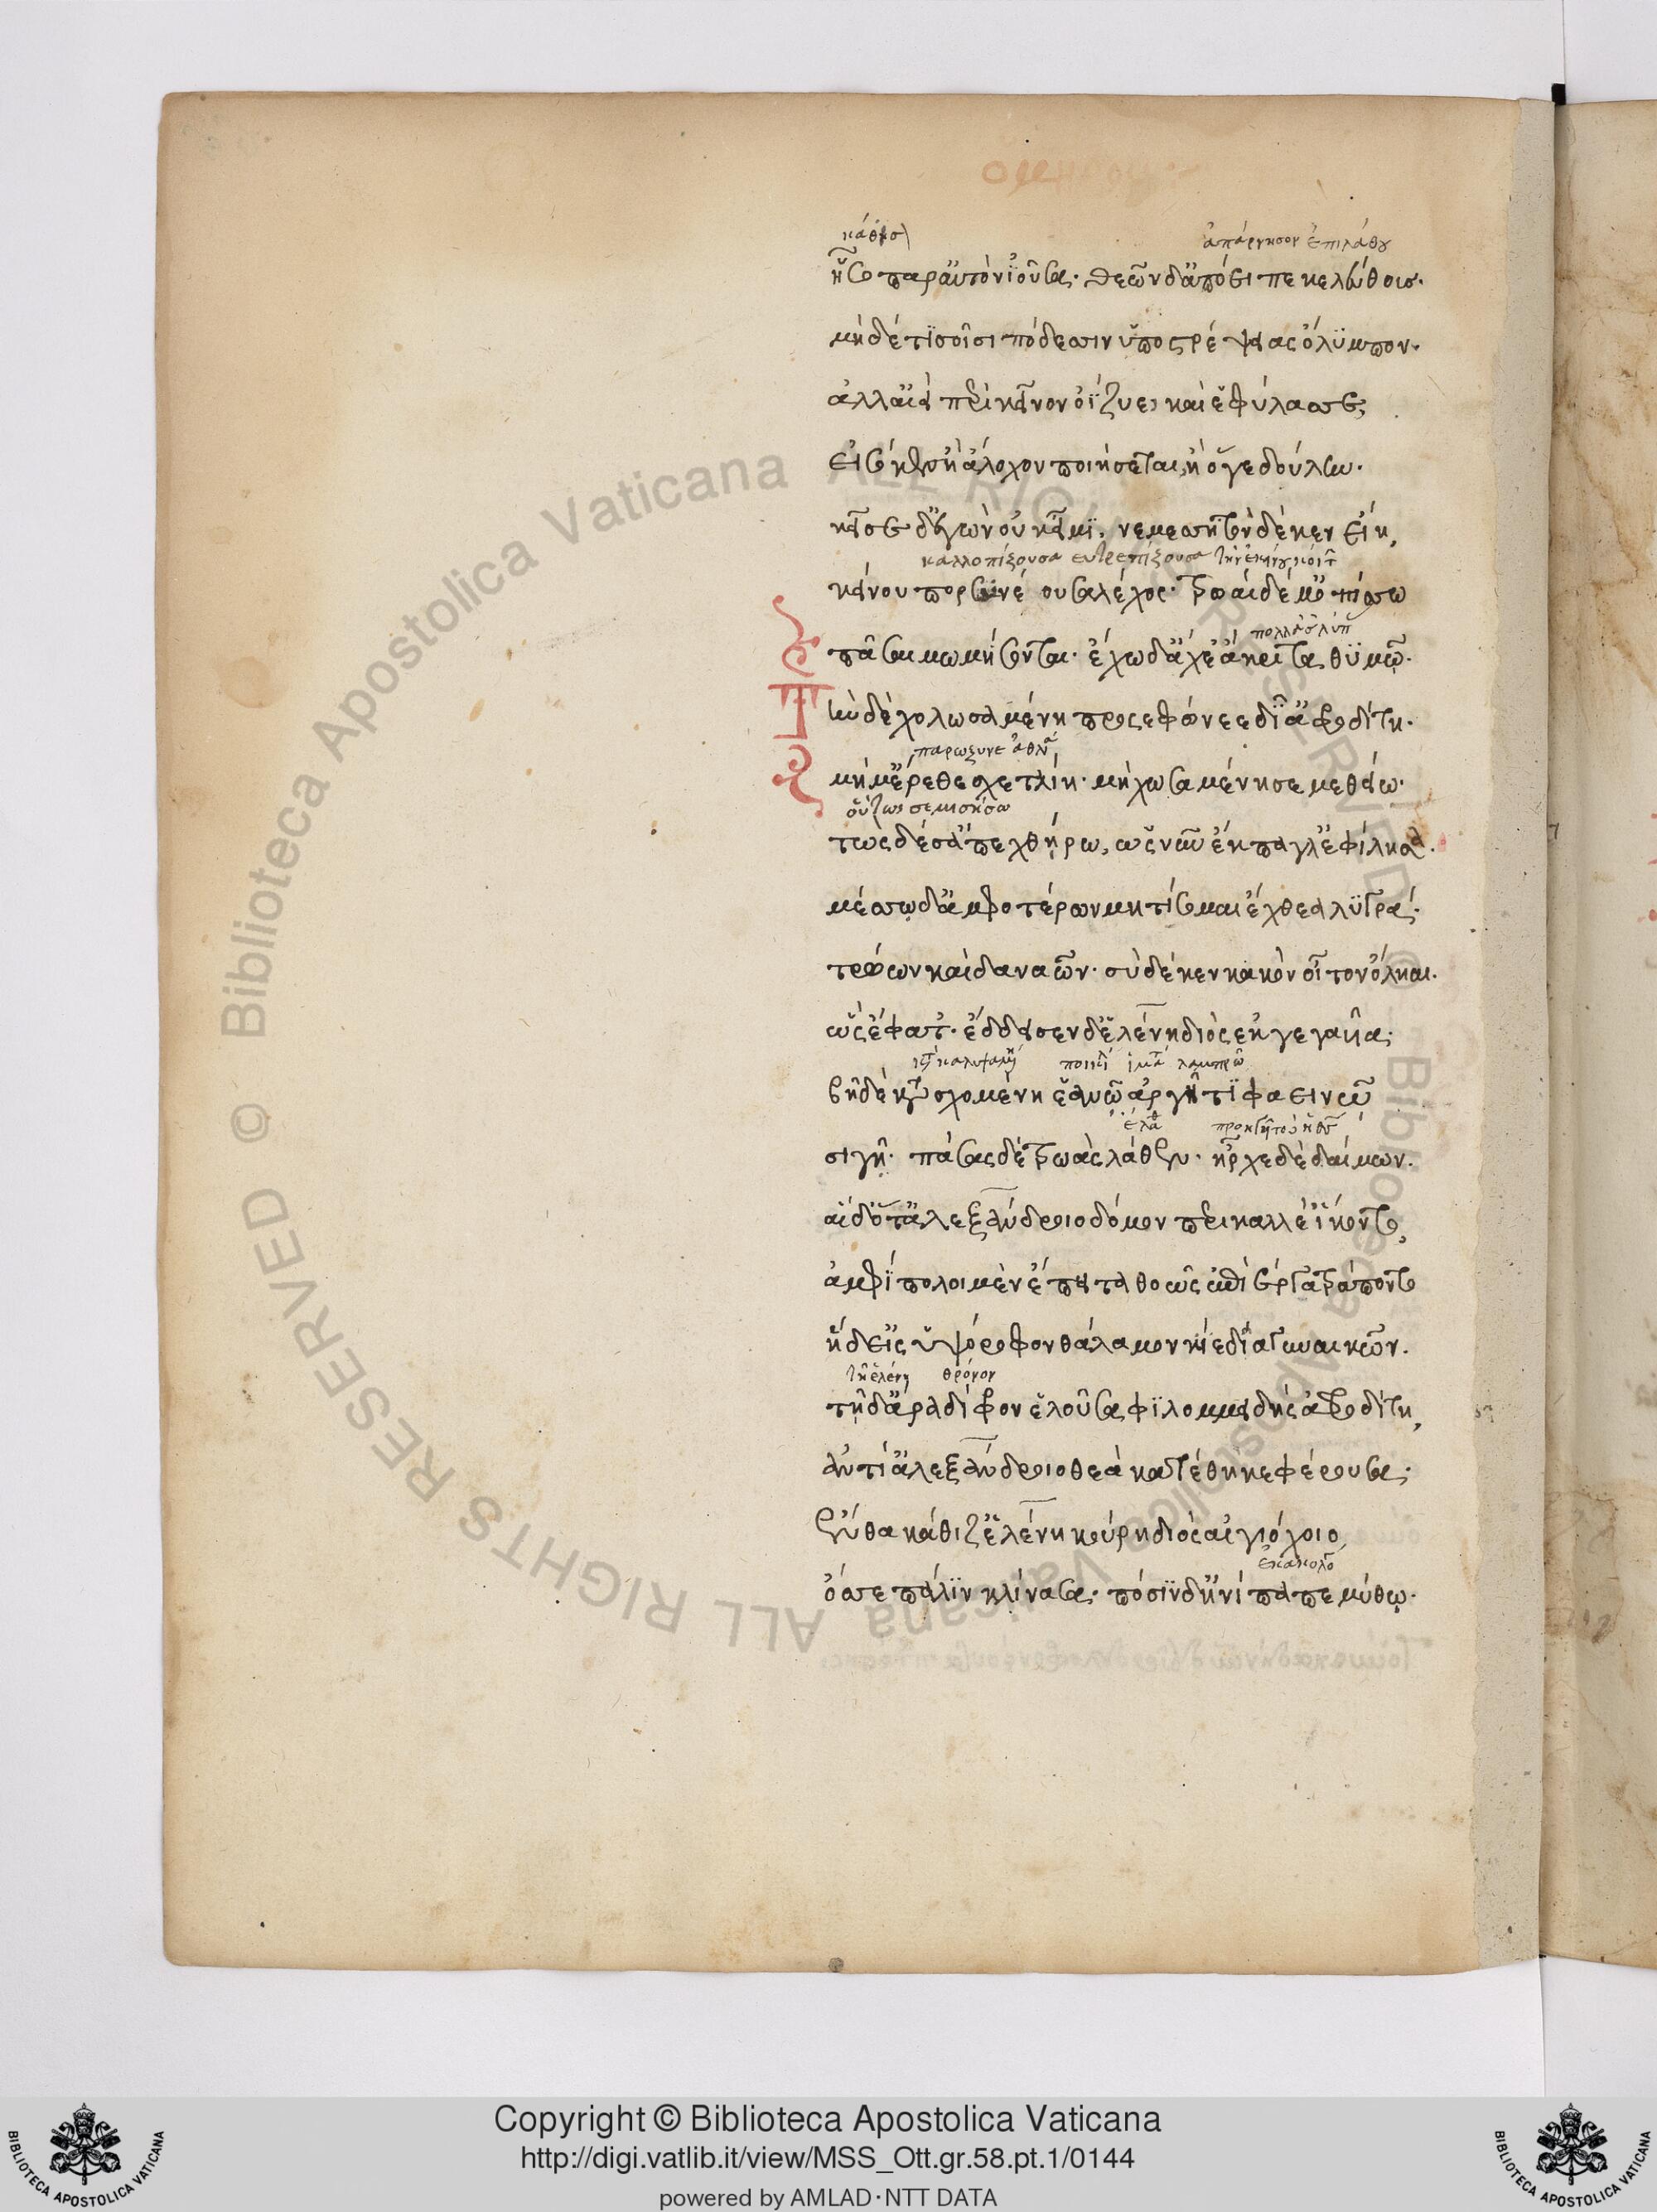 κάθησ
ἀπάρνησον ἐπιλάθου
ἧσο παρ' αὐτὸν ἰοῦσα· θεῶν δ' ἀπόειπε κελεύθοισ·
μηδέ τι σοῖσι πόδεσσιν ὑποστρέψειας ὄλυμπον·
ἀλλ' αἰεὶ περὶ κεῖνον ὀΐζυε, καὶ ἑ φύλασσε,
εἰσόκε σ' ἢ ἄλοχον ποιήσεται, ἢ ὅγε δούλην·
κεῖσε δ' ἐγὼν οὐκ εἶμι, νεμεσσητὸν δέ κεν εἴη,
καλλοπίζουσα εὐτρεπίζουσα τὴν ἐκείνου κοίτ
κείνου πορσυνέουσα λέχος· τρωαὶ δέ μ' ὀπίσσω
πολλὰ
πᾶσαι μωμήσονται· ἔχω δ' ἄχε' ἄκριτα θυμῷ·
Τὴν δὲ χολωσαμένη προσεφώνεε δῖ' ἀφροδίτη·
παρώξυνε ἀθλία
μή μ' ἔρεθε σχετλίη· μὴ χωσαμένη σε μεθείω·
οὕτως σε μισήσω
τὼς δέ σ' ἀπεχθήρω, ὡς νῦν ἔκπαγλ' ἐφίλησα·
μέσσῳ δ' ἀμφοτέρων μητίσομαι ἔχθεα λυγρά·
τρώων καὶ δαναῶν· σὺ δέ κεν κακὸν οἶτον ὄληαι·
ὣς ἔφατ'· ἔδδεισεν δ' ἑλένη διὸς ἐκγεγαυῖα·
λαμπρῶ
βῆ δὲ κατασχομένη ἑανῷ ἀργῆτι φαεινῷ
σιγῇ· πάσας δὲ τρωὰς λάθεν· ἦρχε δὲ δαίμων·
αἱ δ' ὅτ' ἀλεξάνδροιο δόμον περικαλλέ' ἵκοντο,
ἀμφίπολοι μὲν ἔπειτα θοῶς ἐπὶ ἔργα τράποντο
ἡ δ' εἰς ὑψόροφον θάλαμον κίε δῖα γυναικῶν·
τῇ ἑλένῃ θρόνον
τῇ δ' ἄρα δίφρον ἑλοῦσα φιλομμειδὴς ἀφροδίτη,
ἀντί' ἀλεξάνδροιο θεὰ κατέθηκε φέρουσα·
ἔνθα κάθιζ' ἑλένη κούρη διὸς αἰγιόχοιο,
ὄσσε πάλιν κλίνασα· πόσιν δ' ἠνίπαπε μύθῳ·
Copyright © Biblioteca Apostolica Vaticana
http://digi.vatlib.it/view/MSS_Ott.gr.58.pt.1/0144
powered by AMLAD·NTT DATA